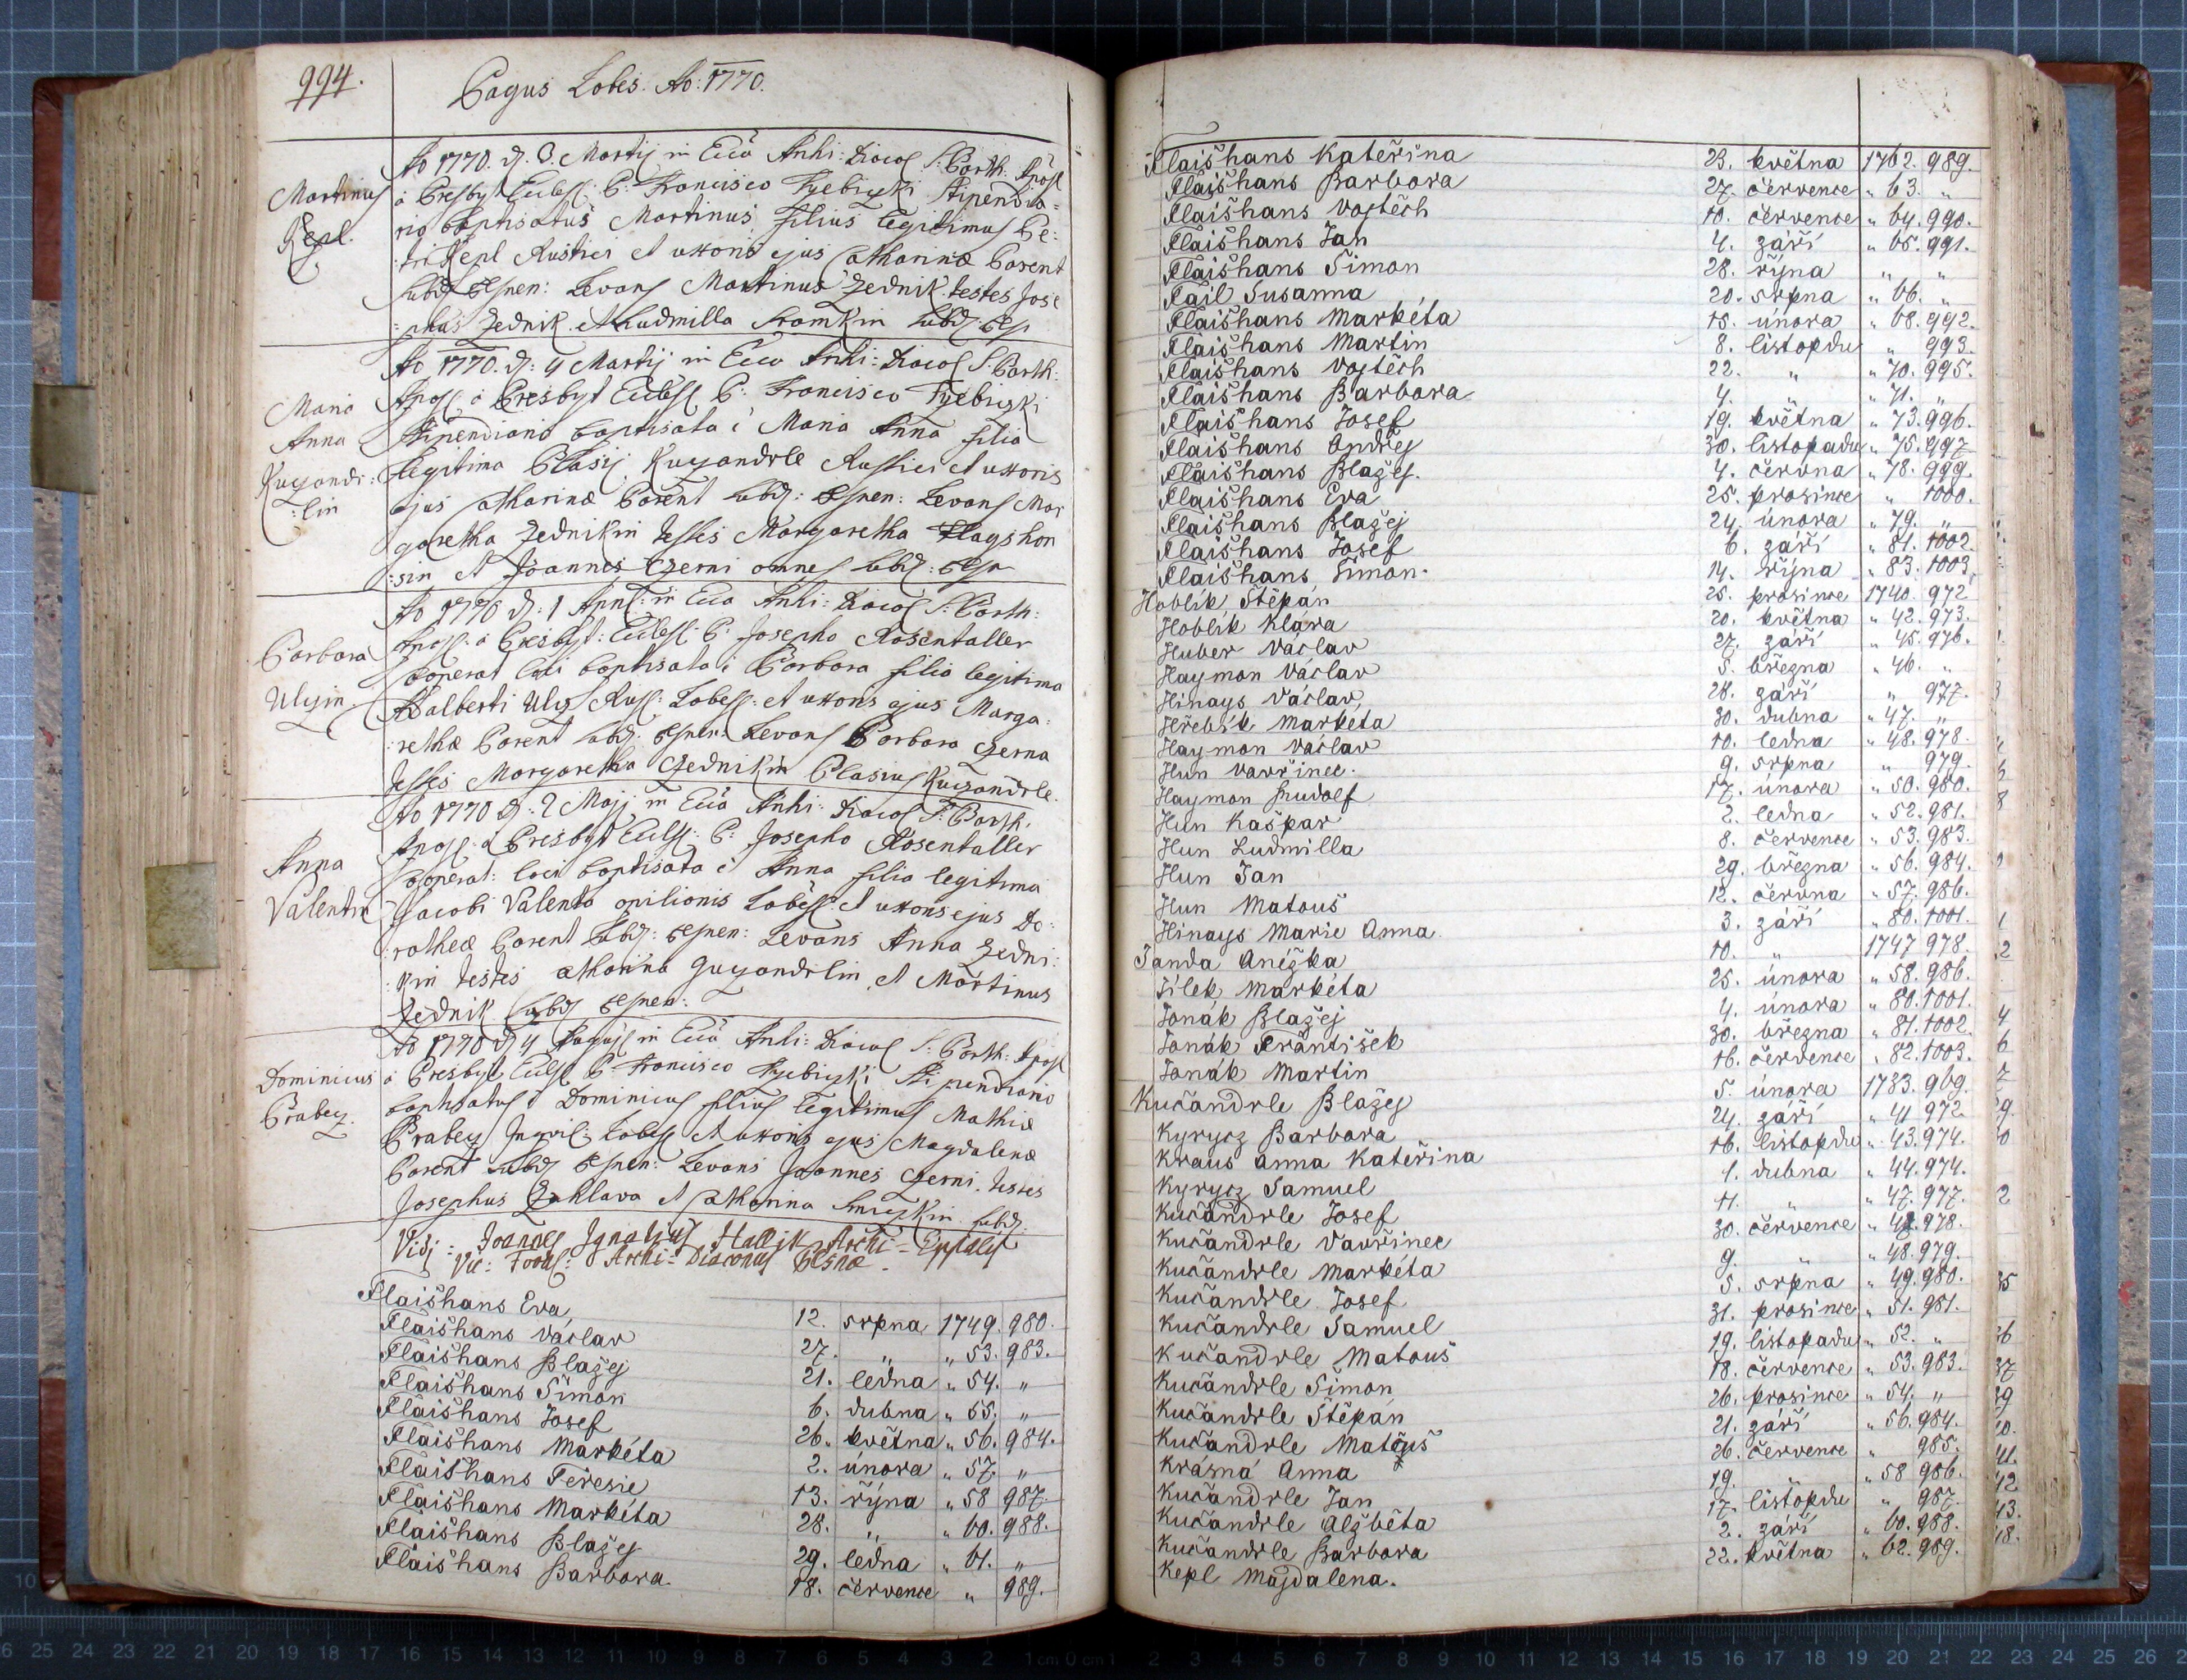 994.
Pagus Lobes. Ao: 1770.
Martinus
Kepl.
Ao 1770. d. 3. Martij in Ecca Archi: Diacol S: Barth: Apost
à Presbyt Eccles: P: Francisco Stipendia-
rio baptisatus Martinus filius legitimus Pe:
tri Kepl Rustici et uxoris ejus Catharinæ Parent
subd: Plsnen: Levans Martinus Zednik testes Jose
phus Zednik et Ludmilla subd: Plsn
Maria
Anna
Kuczandr:
:lin
Ao 1770. d: 4 Martij in Ecca Archi: Diacol S: Barth:
Apost à Presbyt Eccles P: Francisco
Stipendiario baptisata è Maria Anna filia
legitima Blasij Kuczandrle Rustici et uxoris
ejus Catharinæ Parent subd: Plsnen: Levans Mar
garetha Zednikin Testes Margaretha Flayshon
:sin et Joannes Czerni omnes subd: Plsn
Barbara
Ulyin
Ao 1770 d: 1 April: in Ecca Archi: Diacol S: Barth:
Apost: à Presbyt: Eccles: P: Josepho Rosentaller
Cooperat loci baptisata è Barbara filia legitima
Adalberti Uly Rust: Lobess: et uxoris ejus Marga:
:rethæ Parent subd: Plsnen: Levans Barbara Czerna
Testes Margaretha Czednikin Blasius Kuczandrle.
Anna
Valentin
Ao 1770 d: 2 Maji in Ecca Archi: Diacol S: Barth:
Apost: à Presbyt Eccles: P: Josepho Rosentaller
Cooperat: loci baptisata è Anna filia legitima
Jacobi Valenta opilionis Lobess: et uxoris ejus Do:
:rotheæ Parent subd: Plsnen: Levans Anna Zedni:
:kin testes Catharina Guczandrlin, et Martinus
Zednik subd Plsnen:
Dominicus
Brabez.
Ao 1770 d 4 in Ecca Archi: Diacol S: Barth: Apost
à Presbyt Eccles P: Francisco Stipendiario
baptisatus è Dominicus filius legitimus Mathiæ
Brabez Inquil: Lobess et uxoris ejus Magdalenæ
Parent subd Plsnen: Levans Joannes Czerni. testes
Josephus Zahlava et Catharina subd:
Vidj: Joannes Ignatius Archi-
Vic: Foran: Archi-Diaconus Plsnæ.
Flaišhans Eva 12. srpna 1749. 980.
Flaišhans Václav 27. „ „ 53. 983.
Flaišhans Blažej 21. ledna „ 54. „
Flaišhans Šimon 6. dubna „ 55. „
Flaišhans Josef 26. května „ 56. 984.
Flaišhans Markéta 2. února „ 57. „
Flaišhans Teresie 13. října „ 58 987.
Flaišhans Markéta 28. „ „ 60. 988.
Flaišhans Blažej 29. ledna „ 61. „
Flaišhans Barbora. 18. července „ 989.
Flaišhans Kateřina 23. května 1762. 989.
Flaišhans Barbora 27. července „ 63. „
Flaišhans Vojtěch 10. července „ 64. 990.
Flaišhans Jan 4. září „ 65. 991.
Flaišhans Šimon 28. října „ „
Fail Susanna 20. srpna „ 66. „
Flaišhans Markéta 15. února „ 68. 992.
Flaišhans Martin 8. listopdu „ 993.
Flaišhans Vojtěch 22. „ „ 70. 995.
Flaišhans Barbora 4. „ „ 71. „
Flaišhans Josef 19. května „ 73. 996.
Flaišhans Ondřej 30. listopadu „ 75. 997
Flaišhans Blažej. 4. června „ 78. 999.
Flaišhans Eva 25. prosince „ 1000.
Flaišhans Blažej 24. února „ 79. „
Flaišhans Josef 6. září „ 81. 1002.
Flaišhans Šimon. 14. října „ 83. 1003.
Hoblík Štěpán 25. prosince 1740. 972
Hoblík Klára 20. května „ 42. 973.
Huber Václav 27. září „ 45. 976.
Haymon Václav 5. března „ 46. „
Hinays Václav, 28. září „ 977.
Hřebík Markéta 30. dubna „ 47. „
Haymon Václav 10. ledna „ 48. 978.
Hun Vavřinec. 9. srpna „ 979.
Haymon Rudolf 17. února „ 50. 980.
Hun Kašpar 2. ledna „ 52. 981.
Hun Ludmilla 8. července „ 53. 983.
Hun Jan 29. března „ 56. 984.
Hun Matouš 12. června „ 57. 986.
Hinays Marie Anna. 3. září „ 80. 1001.
Janda Anežka 10. „ 1747 978.
Jílek Markéta 25. února „ 58. 986.
Jonák Blažej 4. února „ 80. 1001.
Jonák František 30. března „ 81. 1002.
Jonák Martin 16. července „ 82. 1003.
Kučandrle Blažej 5. února 1733. 969.
Kyrycz Barbora 24. září „ 41 972
Kraus Anna Kateřina 16. listopdu „ 43. 974.
Kyrycz Samuel 1. dubna „ 44. 974.
Kučandrle Josef 11. „ „ 47. 977.
Kučandrle Vavřinec 30. července „ 48. 978.
Kučandrle Markéta 9. „ „ 48. 979.
Kučandrle Josef 5. srpna „ 49. 980.
Kučandrle Samuel 31. prosince „ 51. 981.
Kučandrle Matouš 19. listopadu „ 52. „
Kučandrle Šimon 18. července „ 53. 983.
Kučandrle Štěpán 26. prosince „ 54. „
Kučandrle Matouš 21. září „ 56. 984.
Krásná Anna 26. července „ 985.
Kučandrle Jan 19. „ „ 58 986.
Kučandrle Alžběta 17. listopdu „ 987.
Kučandrle Barbora 2. září „ 60. 988.
Kepl Majdalena. 22. května „ 62. 989.